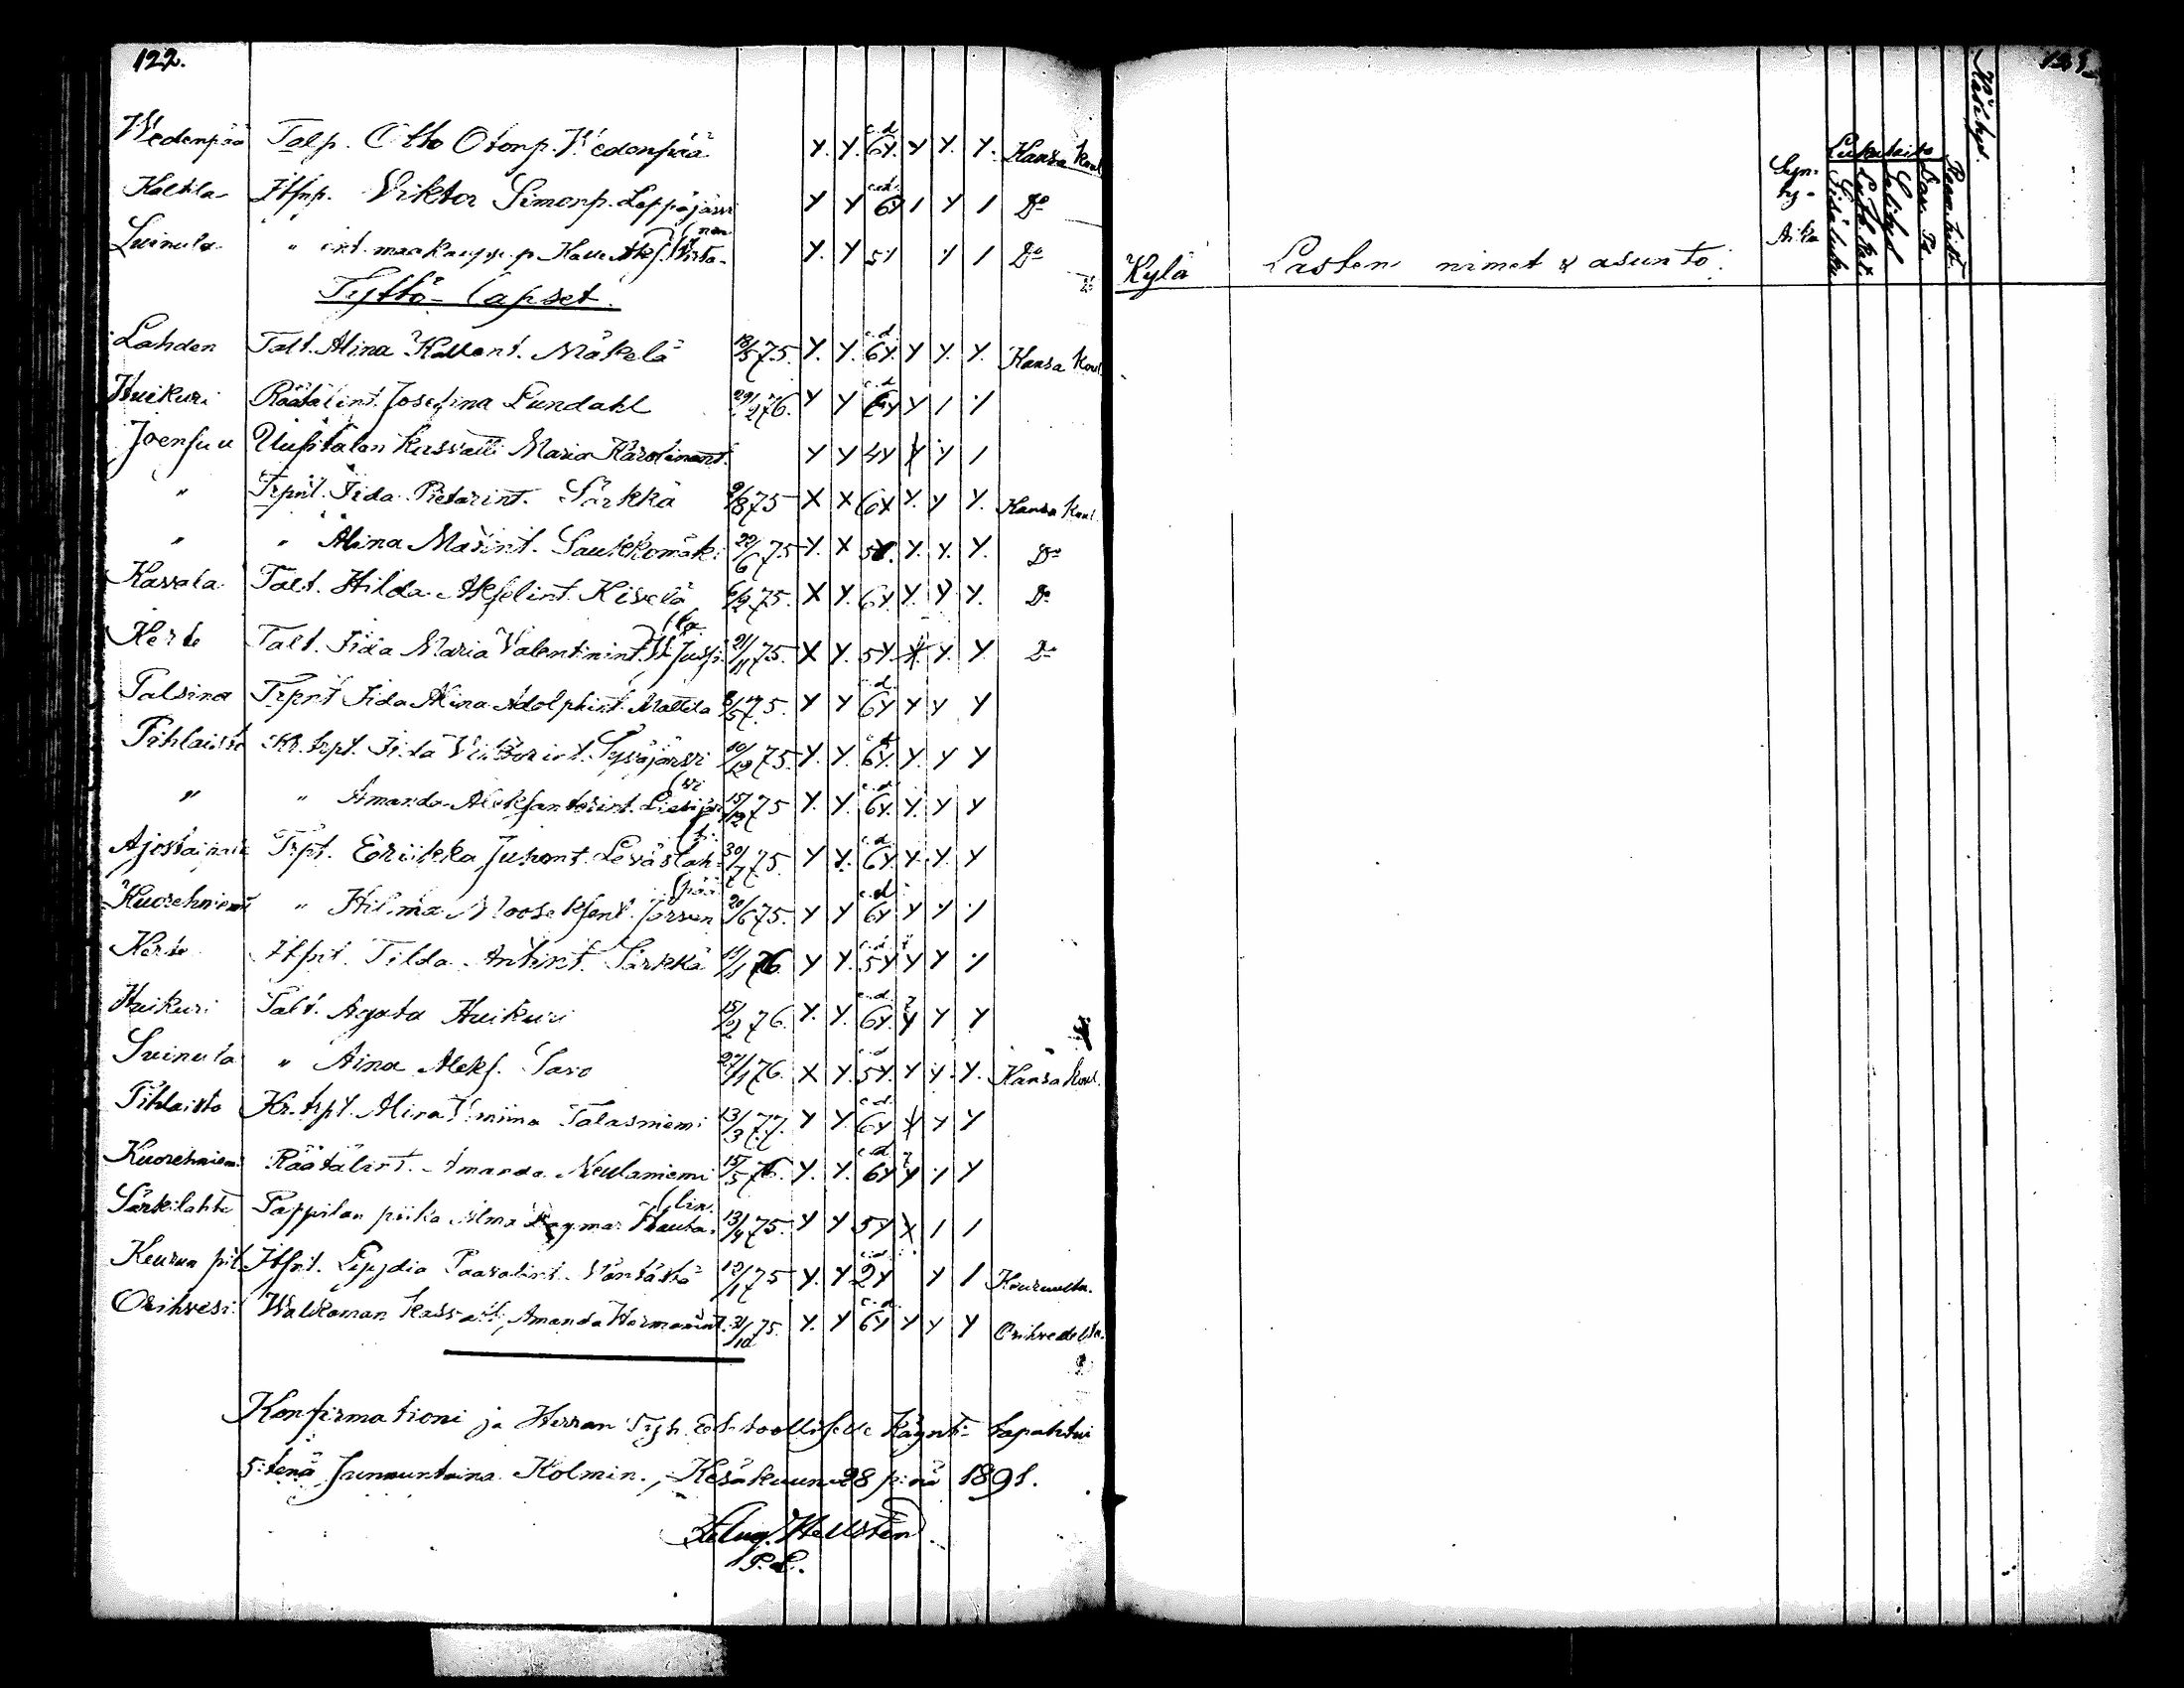 122.
Wedenpää Talp. Otto Otonp. Wedenpää Y. Y. c.d. 6Y. Y Y. Y. Kansa koul
Kaltila Itsnp. Viktor Simonp. Leppäjärvi Y Y c.d. 6Y 1 Y 1 Do
Suinula " int. maakaupp. p. Kalle Aks. Y. Y 5Y Y 1 Do
Tyttö-lapset.
Lahden Talt. Alina Kallent. Mäkelä 18/5 75. Y. Y. c.d. 6Y. Y Y. Y. Kansa Koul.
Huikuri Räätälint. Josefina Lundahl 29/2 76. Y Y c.d. 6Y Y 1 Y
Joensuu Uusitalon kasvatti Maria Karolinant. Y Y 4Y X Y 1
" Trpnt. Iida Pietarint. Särkkä 9/8 75 X X 6X Y. Y Y. Kansa Koul.
" " Alina Masint. Saukkomäki 22/6 75 Y. X 5Y. Y. Y. Y. Do
Kavala Talt. Hilda Akselint. Kivelä 6/2 75. X Y. 6Y. Y. Y Y. Do
Kerte Talt. Iida Maria Valentinint. W. Jussila 21/11 75. X Y. 5Y. X. Y. Y. Do
Talsina Trpnt Iida Alina Adolphint. Mattila 8/5 75. Y Y c.d. 6Y Y Y Y
Pihlaisto Kr. trpt. Iida Viktorint. Syväjärvi 10/12 75. Y. Y. c.d. 6Y. Y. Y Y
" " Amanda Aleksanterint. Liesijärvi 15/12 75 Y. Y. c.d. 6Y. Y. Y Y
Trpt. Eriikka Juhont. Leväslahti 30/7 75. Y Y. c.d. 6Y Y. Y. Y
Kuorehniemi " Hilma Mooseksent. Järvenpää 20/6 75. Y Y c.d. 6Y Y Y Y
Kerte Itsnt. Tilda Antint. Särkkä 11/1 76. Y Y. c.d. 5Y Y Y Y
Huikuri Talt. Agata Huikuri 15/2 76. Y. Y. c.d. 6Y. Y Y Y
Suinula " Aina Aleks. Saro 27/1 76. X Y. c.d. 5Y. Y Y. Y. Kansa koul.
Pihlaisto Kr. trpt. Alina Talasniemi 13/3 77. Y Y c.d. 6Y X Y Y
Kuorehniemi Räätälint. Amanda Neulaniemi 15/5 76. Y. Y. c.d. 6Y Y Y Y
Särkilahti Pappilan piika Alma Dagmar Hautalin. 13/4 75. Y Y 5Y X 1 1
Keuruu pit. Itsnt. Lyydia 12/1 75 Y. Y c.d. 2Y Y 1 Keuruulta.
Orihvesi. Walkaman kasvatt. Amanda Hermanint. 31/10 75. Y. Y c.d. 6Y Y Y Y Orihvedeltä.
Konfirmationi ja Herran Pyh. Ehtoolliselle käynti tapahtui
5:tenä Sunnuntaina Kolmin., Kesäkuun 28 p:nä 1891.
Hellstén
P. L.
123.
Kylä Lasten nimet & asunto. Syn-
ty-
Aika Lukutaito
Sisä luku
Poom. kirk.
Näöstys.